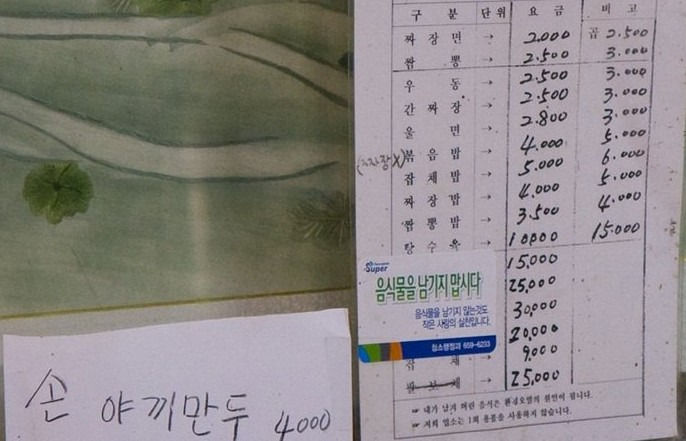 구 분 단위 요 금 비 고
짜 장 면 → 2.000 곱 2.500
짬 뽕 → 2.500 3.000
우 동 → 2.500 3.000
간 짜 장 → 2.500 3.000
울 면 → 2.800 3.000
볶 음 밥 → 4.000 5.000
잡 채 밥 → 5.000 6.000
짜 장 밥 → 4.000 5.000
짬 뽕 밥 → 3.500 4.000
탕 수 육 → 10000 15.000
15,000
25,000
30,000
20,000
잡 채 9,000
팔 보 채 25,000
☞ 내가 남겨 버린 음식은 환경오염의 원인이 됩니다.
☞ 저희 업소는 1회 용품을 사용하지 않습니다.
Super
음식물을 남기지 맙시다
음식물을 남기지 않는것도
작은 사랑의 실천입니다.
청소행정과 659-6233
손 야끼만두 4000